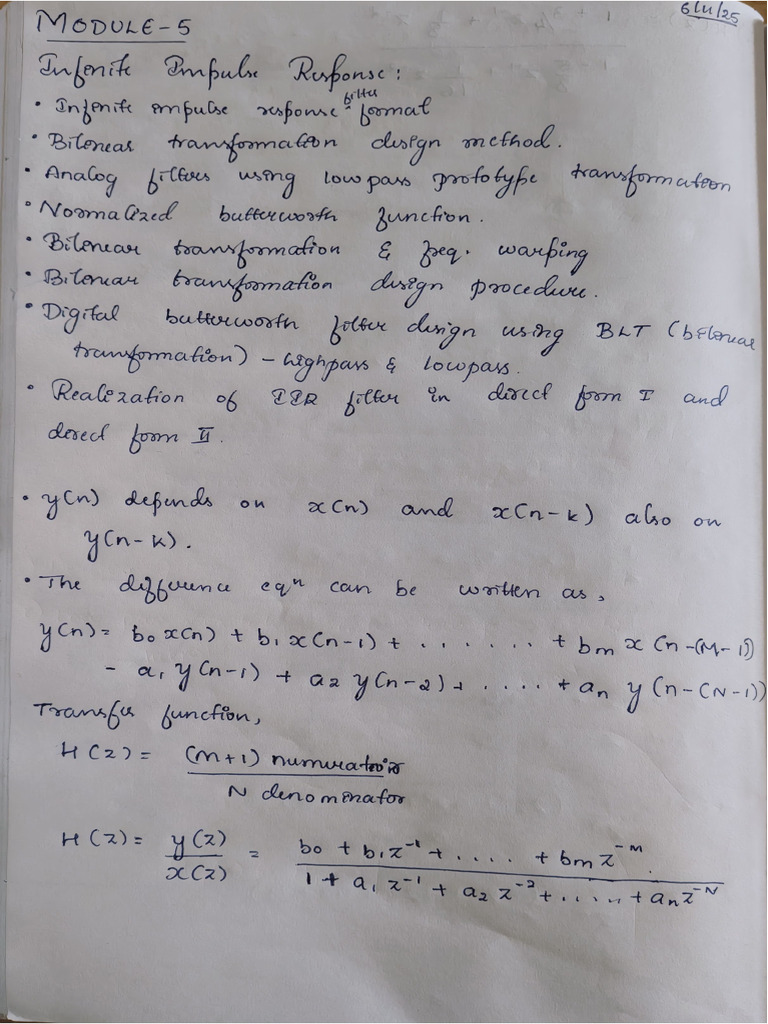 6/11/25
MODULE-5
Infinite Impulse Response:
• Infinite impulse response filter format
• Bilinear transformation design method.
• Analog filters using lowpass prototype transformation
• Normalized butterworth function.
• Bilinear transformation & freq. warping
• Bilinear transformation design procedure.
• Digital butterworth filter design using BLT (bilinear
transformation) - highpass & lowpass.
• Realization of IIR filter in direct form I and
direct form II.
• y(n) depends on x(n) and x(n-k) also on
y(n-k).
• The difference eqⁿ can be written as,
y(n) = b₀ x(n) + b₁ x(n-1) + . . . . . . + bₘ x (n-(M-1))
- a₁ y(n-1) + a₂ y(n-2) + . . . . + aₙ y (n-(N-1))
Transfer function,
H(z) = (M+1) numerator
N denominator
H(z) = y(z) / x(z) = b₀ + b₁z⁻¹ + . . . . + bₘz⁻ᴹ / 1 + a₁ z⁻¹ + a₂ z⁻² + . . . . . + aₙz⁻ᴺ